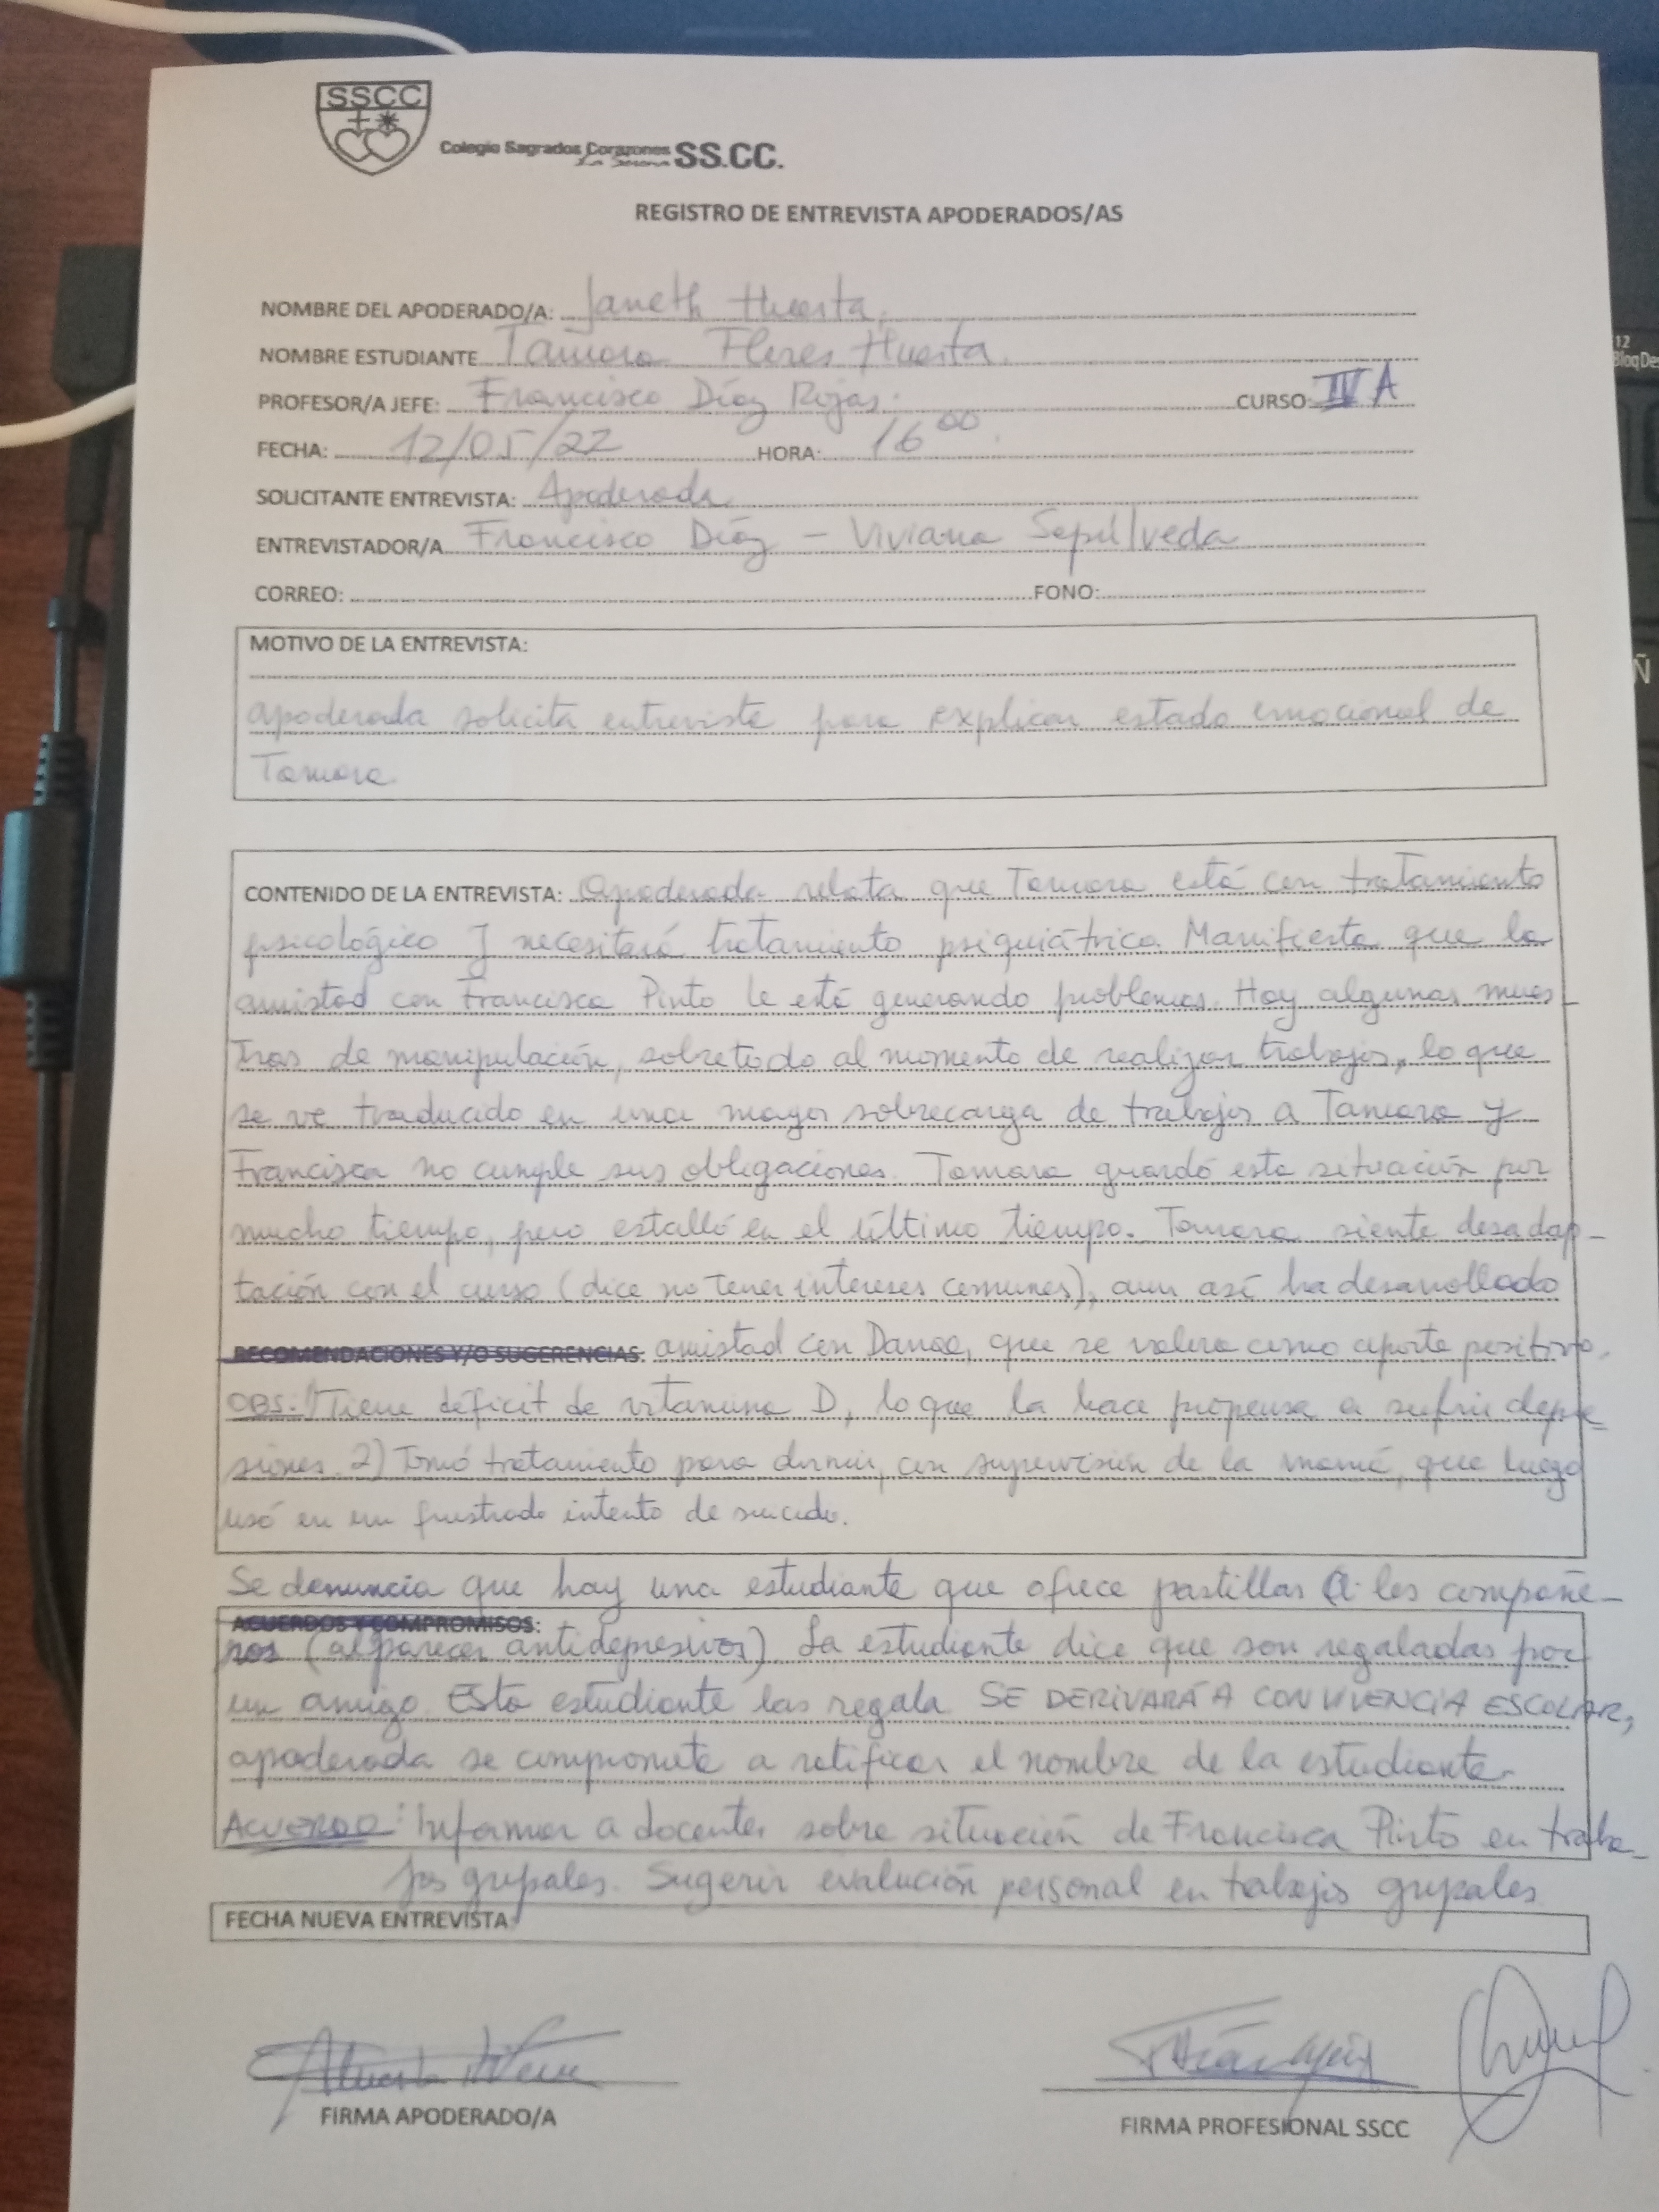 SSCC
Colegio Sagrados Corazones SS.CC.
La Serena
REGISTRO DE ENTREVISTA APODERADOS/AS
NOMBRE DEL APODERADO/A: Janeth Huerta.
NOMBRE ESTUDIANTE Tamara Flores Huerta.
PROFESOR/A JEFE: Francisco Díaz Rojas. CURSO: IV A
FECHA: 12/05/22 HORA: 16 00.
SOLICITANTE ENTREVISTA: Apoderada
ENTREVISTADOR/A Francisco Díaz - Viviana Sepúlveda
CORREO: FONO:
MOTIVO DE LA ENTREVISTA:
apoderada solicita entrevista para explicar estado emocional de
Tamara
CONTENIDO DE LA ENTREVISTA: Apoderada relata que Tamara está con tratamiento
psicológico y necesitará tratamiento psiquiátrico. Manifiesta que la
amistad con Francisca Pinto le está generando problemas. Hay algunas mues-
tras de manipulación, sobretodo al momento de realizar trabajos, lo que
se ve traducido en una mayor sobrecarga de trabajos a Tamara y
Francisca no cumple sus obligaciones. Tamara guardó esta situación por
mucho tiempo, pero estalló en el último tiempo. Tamara siente desadap-
tación con el curso (dice no tener intereses comunes), aun así ha desarrollado
RECOMENDACIONES Y/O SUGERENCIAS: amistad con Danae, que se valora como aporte positivo.
OBS: 1) Tiene déficit de vitamina D, lo que la hace propensa a sufrir depre-
siones. 2) Tomó tratamiento para dormir, con supervisión de la mamá, que luego
usó en un frustrado intento de suicido.
Se denuncia que hay una estudiante que ofrece pastillas a los compañe-
ACUERDOS Y COMPROMISOS:
ros (al parecer antidepresivos). La estudiante dice que son regaladas por
un amigo. Esta estudiante las regala. SE DERIVARÁ A CONVIVENCIA ESCOLAR,
apoderada se compromete a ratificar el nombre de la estudiante.
ACUERDO: Informar a docentes sobre situación de Francisca Pinto en traba-
jos grupales. Sugerir evalución personal en trabajos grupales.
FECHA NUEVA ENTREVISTA:
FIRMA APODERADO/A
FIRMA PROFESIONAL SSCC